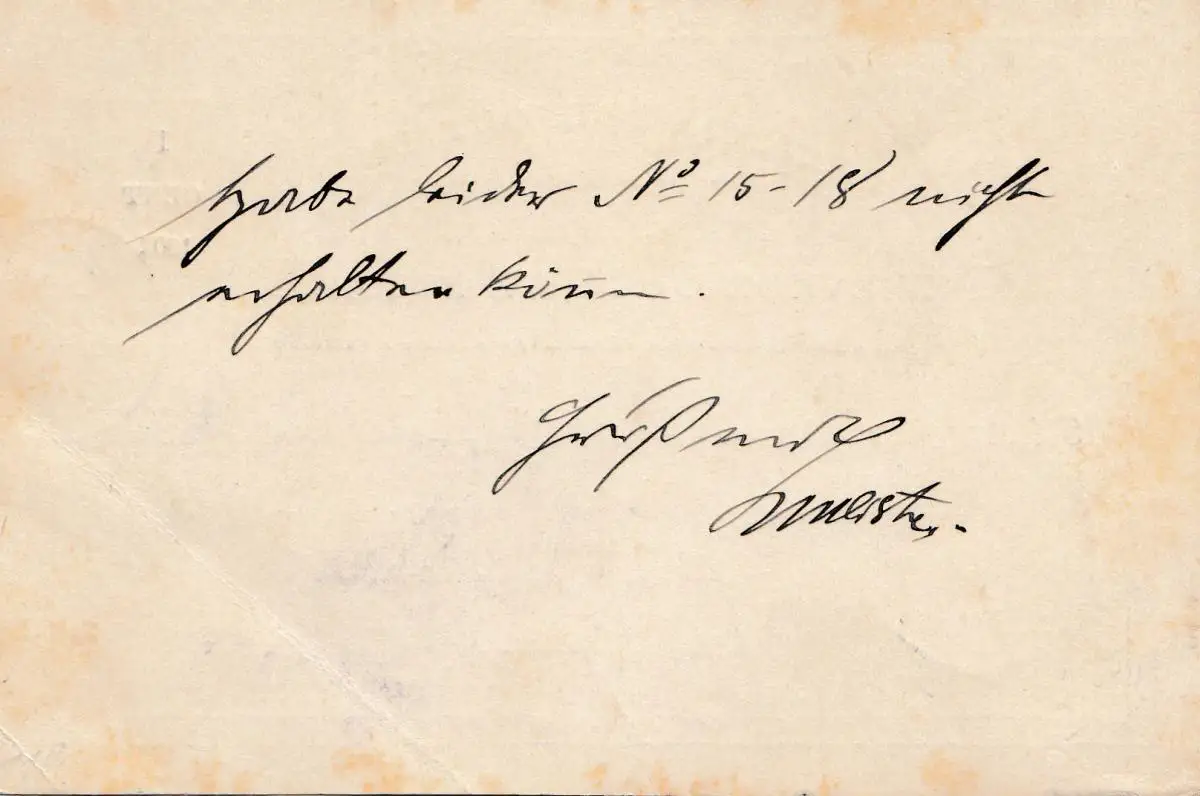 Habe leider No 15-18 nicht
erhalten können.
Grüßend
Meister.